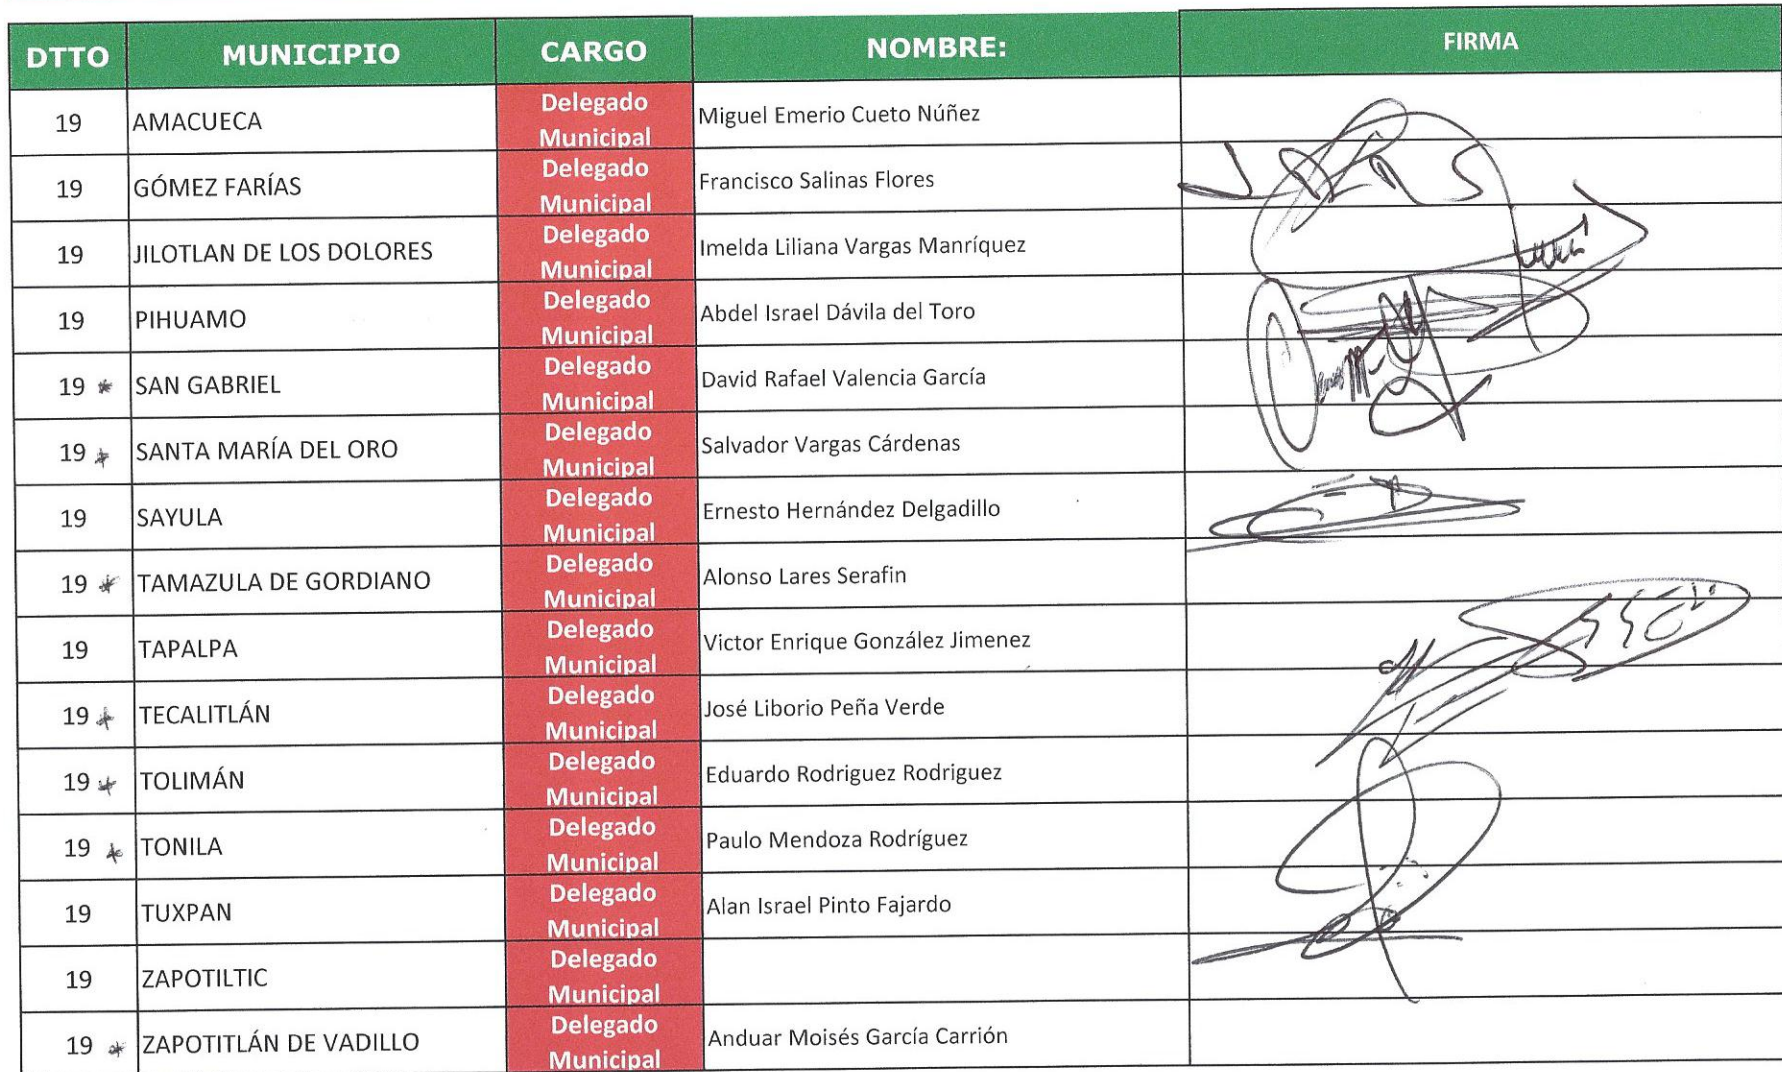 DTTO MUNICIPIO CARGO NOMBRE: FIRMA
19 AMACUECA Delegado Municipal Miguel Emerio Cueto Núñez
19 GÓMEZ FARÍAS Delegado Municipal Francisco Salinas Flores
19 JILOTLAN DE LOS DOLORES Delegado Municipal Imelda Liliana Vargas Manríquez
19 PIHUAMO Delegado Municipal Abdel Israel Dávila del Toro
19 * SAN GABRIEL Delegado Municipal David Rafael Valencia García
19 * SANTA MARÍA DEL ORO Delegado Municipal Salvador Vargas Cárdenas
19 SAYULA Delegado Municipal Ernesto Hernández Delgadillo
19 * TAMAZULA DE GORDIANO Delegado Municipal Alonso Lares Serafin
19 TAPALPA Delegado Municipal Victor Enrique González Jimenez
19 * TECALITLÁN Delegado Municipal José Liborio Peña Verde
19 * TOLIMÁN Delegado Municipal Eduardo Rodriguez Rodriguez
19 * TONILA Delegado Municipal Paulo Mendoza Rodríguez
19 TUXPAN Delegado Municipal Alan Israel Pinto Fajardo
19 ZAPOTILTIC Delegado Municipal
19 * ZAPOTITLÁN DE VADILLO Delegado Municipal Anduar Moisés García Carrión